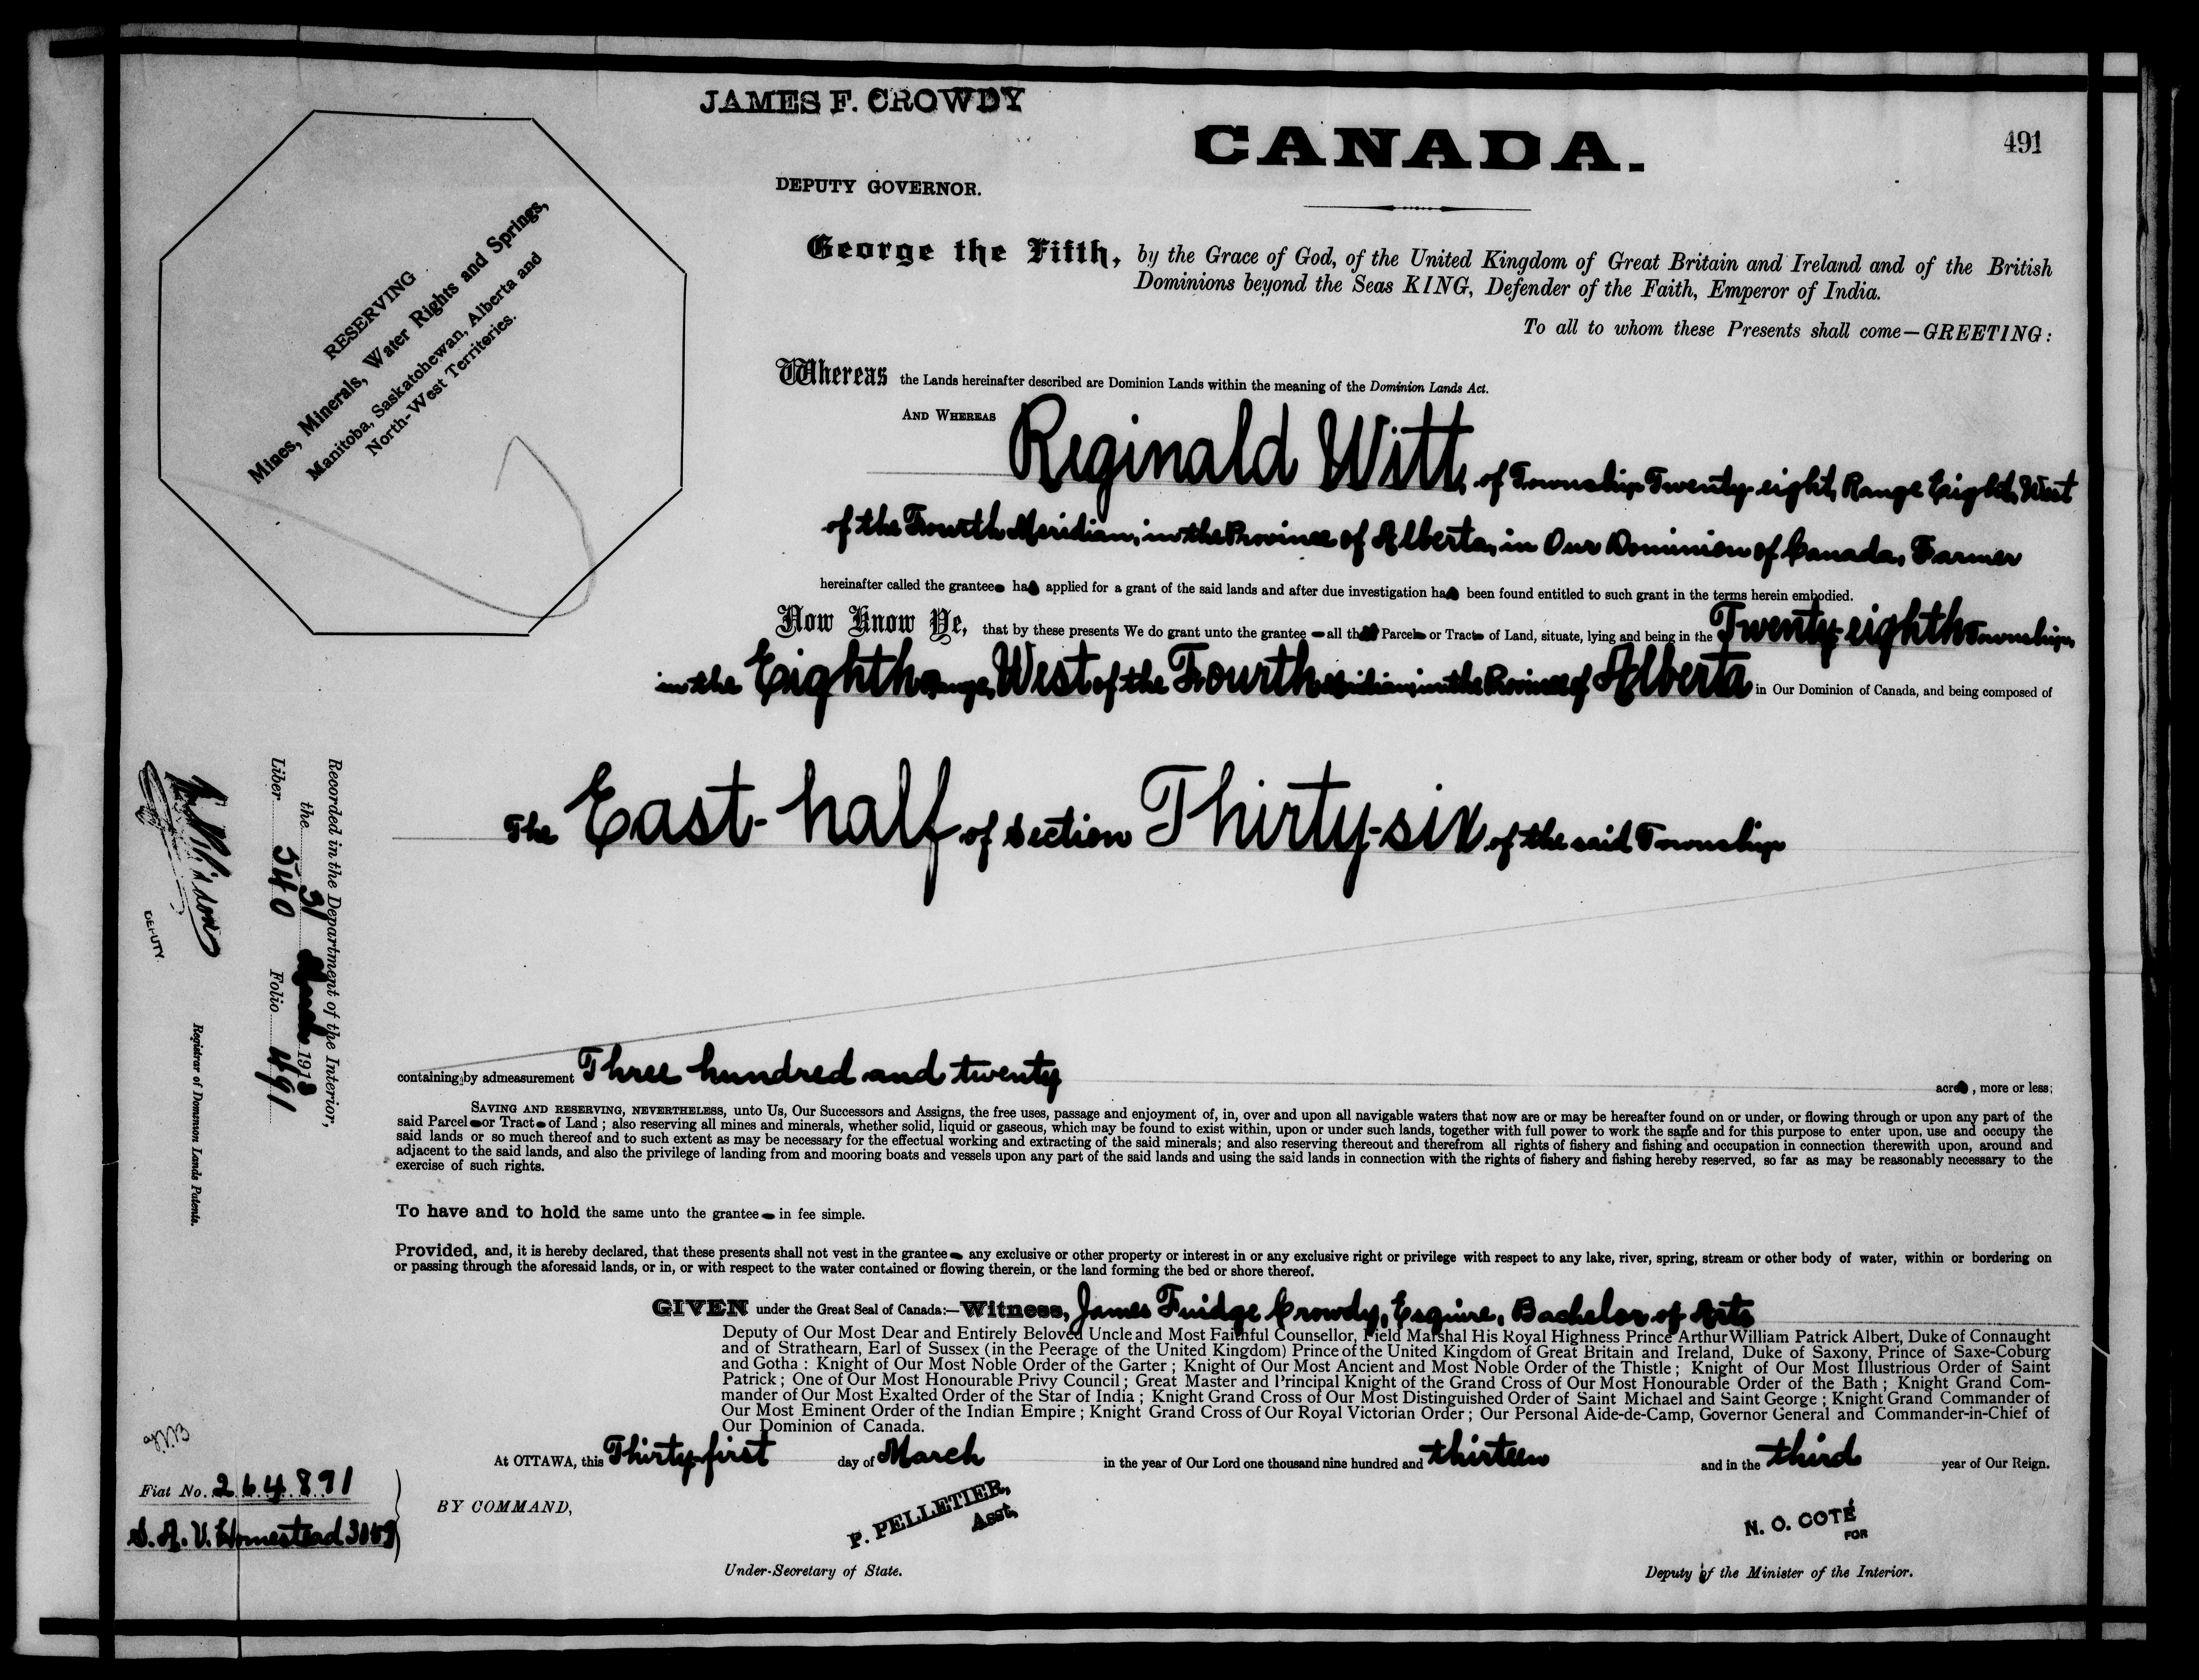 JAMES F. CROWDY
CANADA.
491
DEPUTY GOVERNOR.
RESERVING
Mines, Minerals, Water Rights and Springs,
Manitoba, Saskatchewan, Alberta and
North-West Territories.
George the Fifth, by the Grace of God, of the United Kingdom of Great Britain and Ireland and of the British
Dominions beyond the Seas KING, Defender of the Faith, Emperor of India.
To all to whom these Presents shall come—GREETING:
Whereas the Lands hereinafter described are Dominion Lands within the meaning of the Dominion Lands Act.
AND WHEREAS
Reginald Witt, of Township Twenty-eight, Range Eight, West
of the Fourth Meridian, in the Province of Alberta, in Our Dominion of Canada, Farmer
hereinafter called the grantee has applied for a grant of the said lands and after due investigation has been found entitled to such grant in the terms herein embodied.
Now Know Ye, that by these presents We do grant unto the grantee all that Parcel or Tract of Land, situate, lying and being in the Twenty-eighth Township,
in the Eighth Range, West of the Fourth Meridian, in the Province of Alberta in Our Dominion of Canada, and being composed of
The East-half of Section Thirty-six of the said Township
containing by admeasurement Three hundred and twenty acres, more or less;
SAVING AND RESERVING, NEVERTHELESS, unto Us, Our Successors and Assigns, the free uses, passage and enjoyment of, in, over and upon all navigable waters that now are or may be hereafter found on or under, or flowing through or upon any part of the
said Parcel or Tract of Land; also reserving all mines and minerals, whether solid, liquid or gaseous, which may be found to exist within, upon or under such lands, together with full power to work the same and for this purpose to enter upon, use and occupy the
said lands or so much thereof and to such extent as may be necessary for the effectual working and extracting of the said minerals; and also reserving thereout and therefrom all rights of fishery and fishing and occupation in connection therewith upon, around and
adjacent to the said lands, and also the privilege of landing from and mooring boats and vessels upon any part of the said lands and using the said lands in connection with the rights of fishery and fishing hereby reserved, so far as may be reasonably necessary to the
exercise of such rights.
To have and to hold the same unto the grantee in fee simple.
Provided, and, it is hereby declared, that these presents shall not vest in the grantee any exclusive or other property or interest in or any exclusive right or privilege with respect to any lake, river, spring, stream or other body of water, within or bordering on
or passing through the aforesaid lands, or in, or with respect to the water contained or flowing therein, or the land forming the bed or shore thereof.
GIVEN under the Great Seal of Canada:—Witness, James Fuidge Crowdy, Esquire, Bachelor of Arts
Deputy of Our Most Dear and Entirely Beloved Uncle and Most Faithful Counsellor, Field Marshal His Royal Highness Prince Arthur William Patrick Albert, Duke of Connaught
and of Strathearn, Earl of Sussex (in the Peerage of the United Kingdom) Prince of the United Kingdom of Great Britain and Ireland, Duke of Saxony, Prince of Saxe-Coburg
and Gotha: Knight of Our Most Noble Order of the Garter; Knight of Our Most Ancient and Most Noble Order of the Thistle; Knight of Our Most Illustrious Order of Saint
Patrick; One of Our Most Honourable Privy Council; Great Master and Principal Knight of the Grand Cross of Our Most Honourable Order of the Bath; Knight Grand Com-
mander of Our Most Exalted Order of the Star of India; Knight Grand Cross of Our Most Distinguished Order of Saint Michael and Saint George; Knight Grand Commander of
Our Most Eminent Order of the Indian Empire; Knight Grand Cross of Our Royal Victorian Order; Our Personal Aide-de-Camp, Governor General and Commander-in-Chief of
Our Dominion of Canada.
At OTTAWA, this Thirty-first day of March in the year of Our Lord one thousand nine hundred and thirteen and in the third year of Our Reign.
BY COMMAND,
P. PELLETIER,
Asst.
Under-Secretary of State.
N. O. COTÉ
FOR
Deputy of the Minister of the Interior.
Recorded in the Department of the Interior,
the 31 March 1913
Liber 540 Folio 491
DEPUTY
Registrar of Dominion Lands Patents.
Fiat No. 264891
S. A. V. Homestead